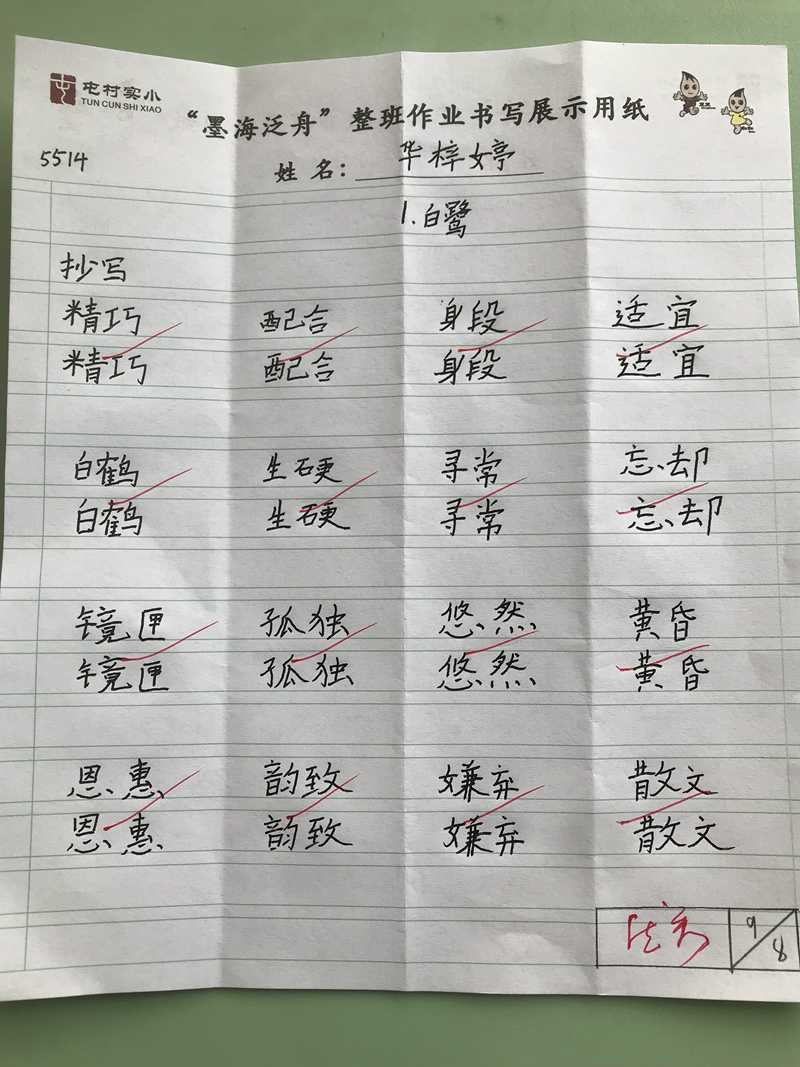 屯村实小
TUN CUN SHI XIAO
“墨海泛舟”整班作业书写展示用纸
5514
姓名：华梓婷
1.白鹭
抄写
精巧 配合 身段 适宜
精巧 配合 身段 适宜
白鹤 生硬 寻常 忘却
白鹤 生硬 寻常 忘却
镜匣 孤独 悠然 黄昏
镜匣 孤独 悠然 黄昏
恩惠 韵致 嫌弃 散文
恩惠 韵致 嫌弃 散文
优秀 9/8